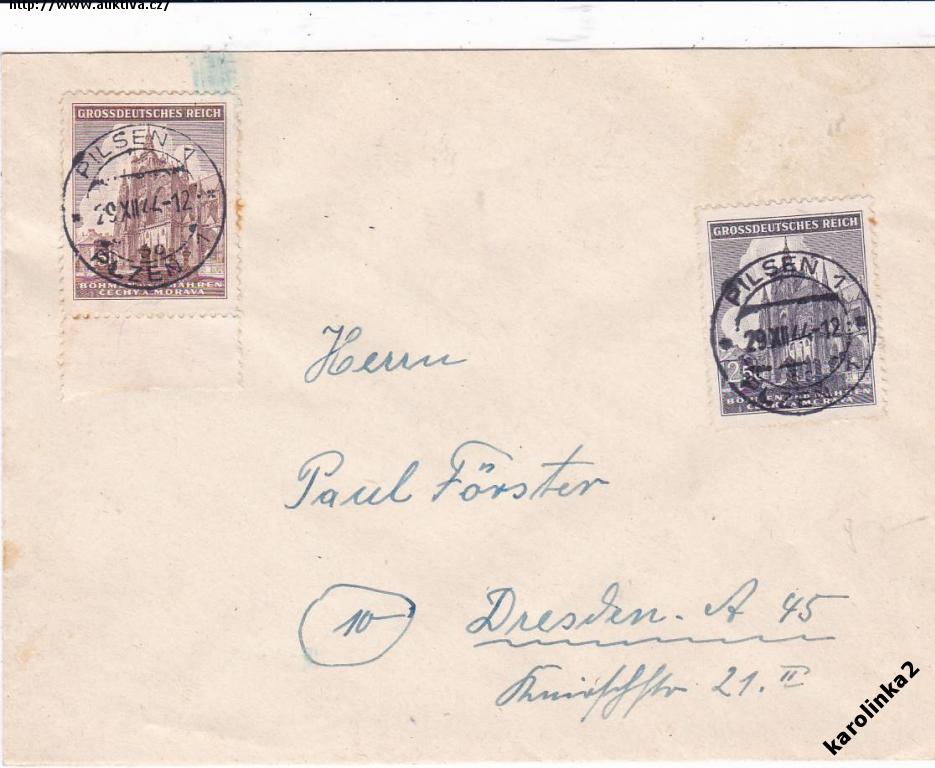 http://www.auktiva.cz/
GROSSDEUTSCHES REICH
PILSEN 1
29.XII.44-12
PLZEN 1
BÖHMEN UND MÄHREN
ČECHY A MORAVA
GROSSDEUTSCHES REICH
PILSEN 1
29.XII.44-12
PLZEN
BÖHMEN UND MÄHREN
ČECHY A MORAVA
Herrn
Paul Förster
10
Dresden-A 45
21. II
karolinka2